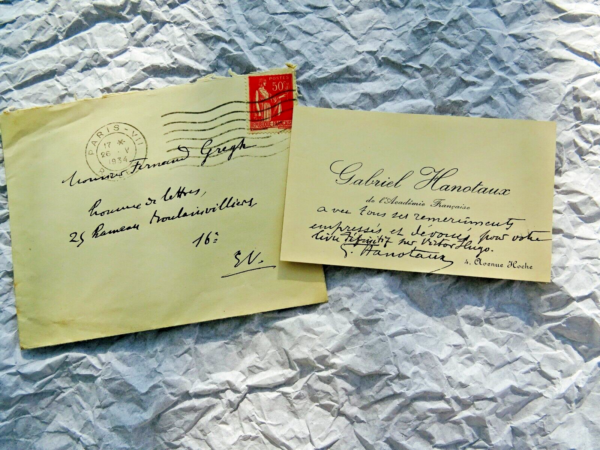 PARIS-VII
17 H
26 · V
1934
POSTES
50c
Monsieur Fernand Gregh
homme de lettres,
25 hameau Boulainvilliers
16e
E.V.
Gabriel Hanotaux
de l'Académie Française
avec tous ses remerciments
empressés et dévoués, pour votre
livre définitif sur Victor Hugo.
G. Hanotaux
4, Avenue Hoche